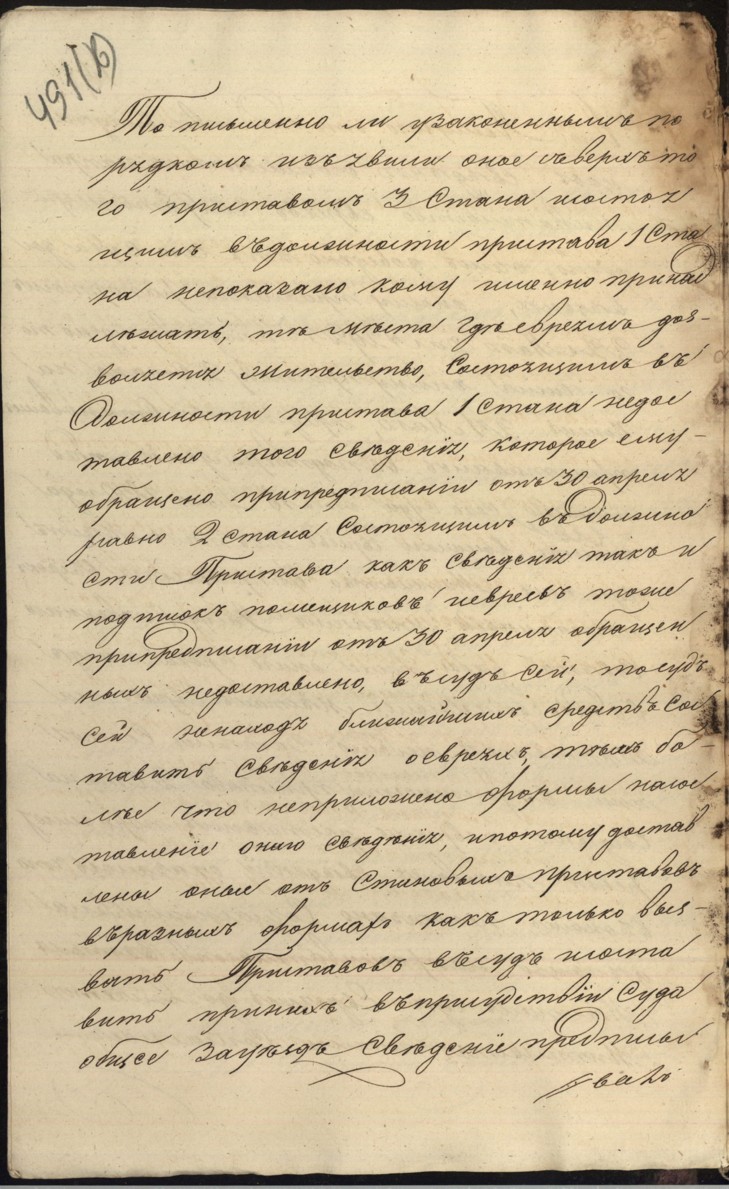 491 (б)
То письменно ли узаконеннымъ по
рядкомъ изъявили оное сверхъ то
го приставомъ 3 Стана исостоя
щимъ вѣдолжности пристава 1 Ста
на непоказано кому именно принад
лѣжатъ, тѣ мѣста гдѣ евреямъ доз-
воляется жительство, Состоящимъ въ
Должности пристава 1 стана недос
тавлено того свѣденія, которое ему-
обращено припредписаніи отъ 30 апреля
равно 2 стана Состоящимъ въ Должно
сти Пристава какъ свѣденія такъ и
подписокъ помещиковъ иевреевъ тоже
припредписаніи отъ 30 апреля обращен
ныхъ недоставлено, въсудъ сей, тосудъ
сей ненаходя ближайшихъ средствъ сос
тавить свѣденія оевреяхъ, тѣмъ бо-
лѣе что неприложено формы насос
тавленіе онаго свѣдѣнія, ипотому достав
лены оные отъ Становыхъ приставовъ
въразныхъ формахъ какъ только выз-
вать Приставовъ въсудъ исоста
вить принихъ въприсудствіи Суда
общее зауѣздъ свѣденіе предписы
вать